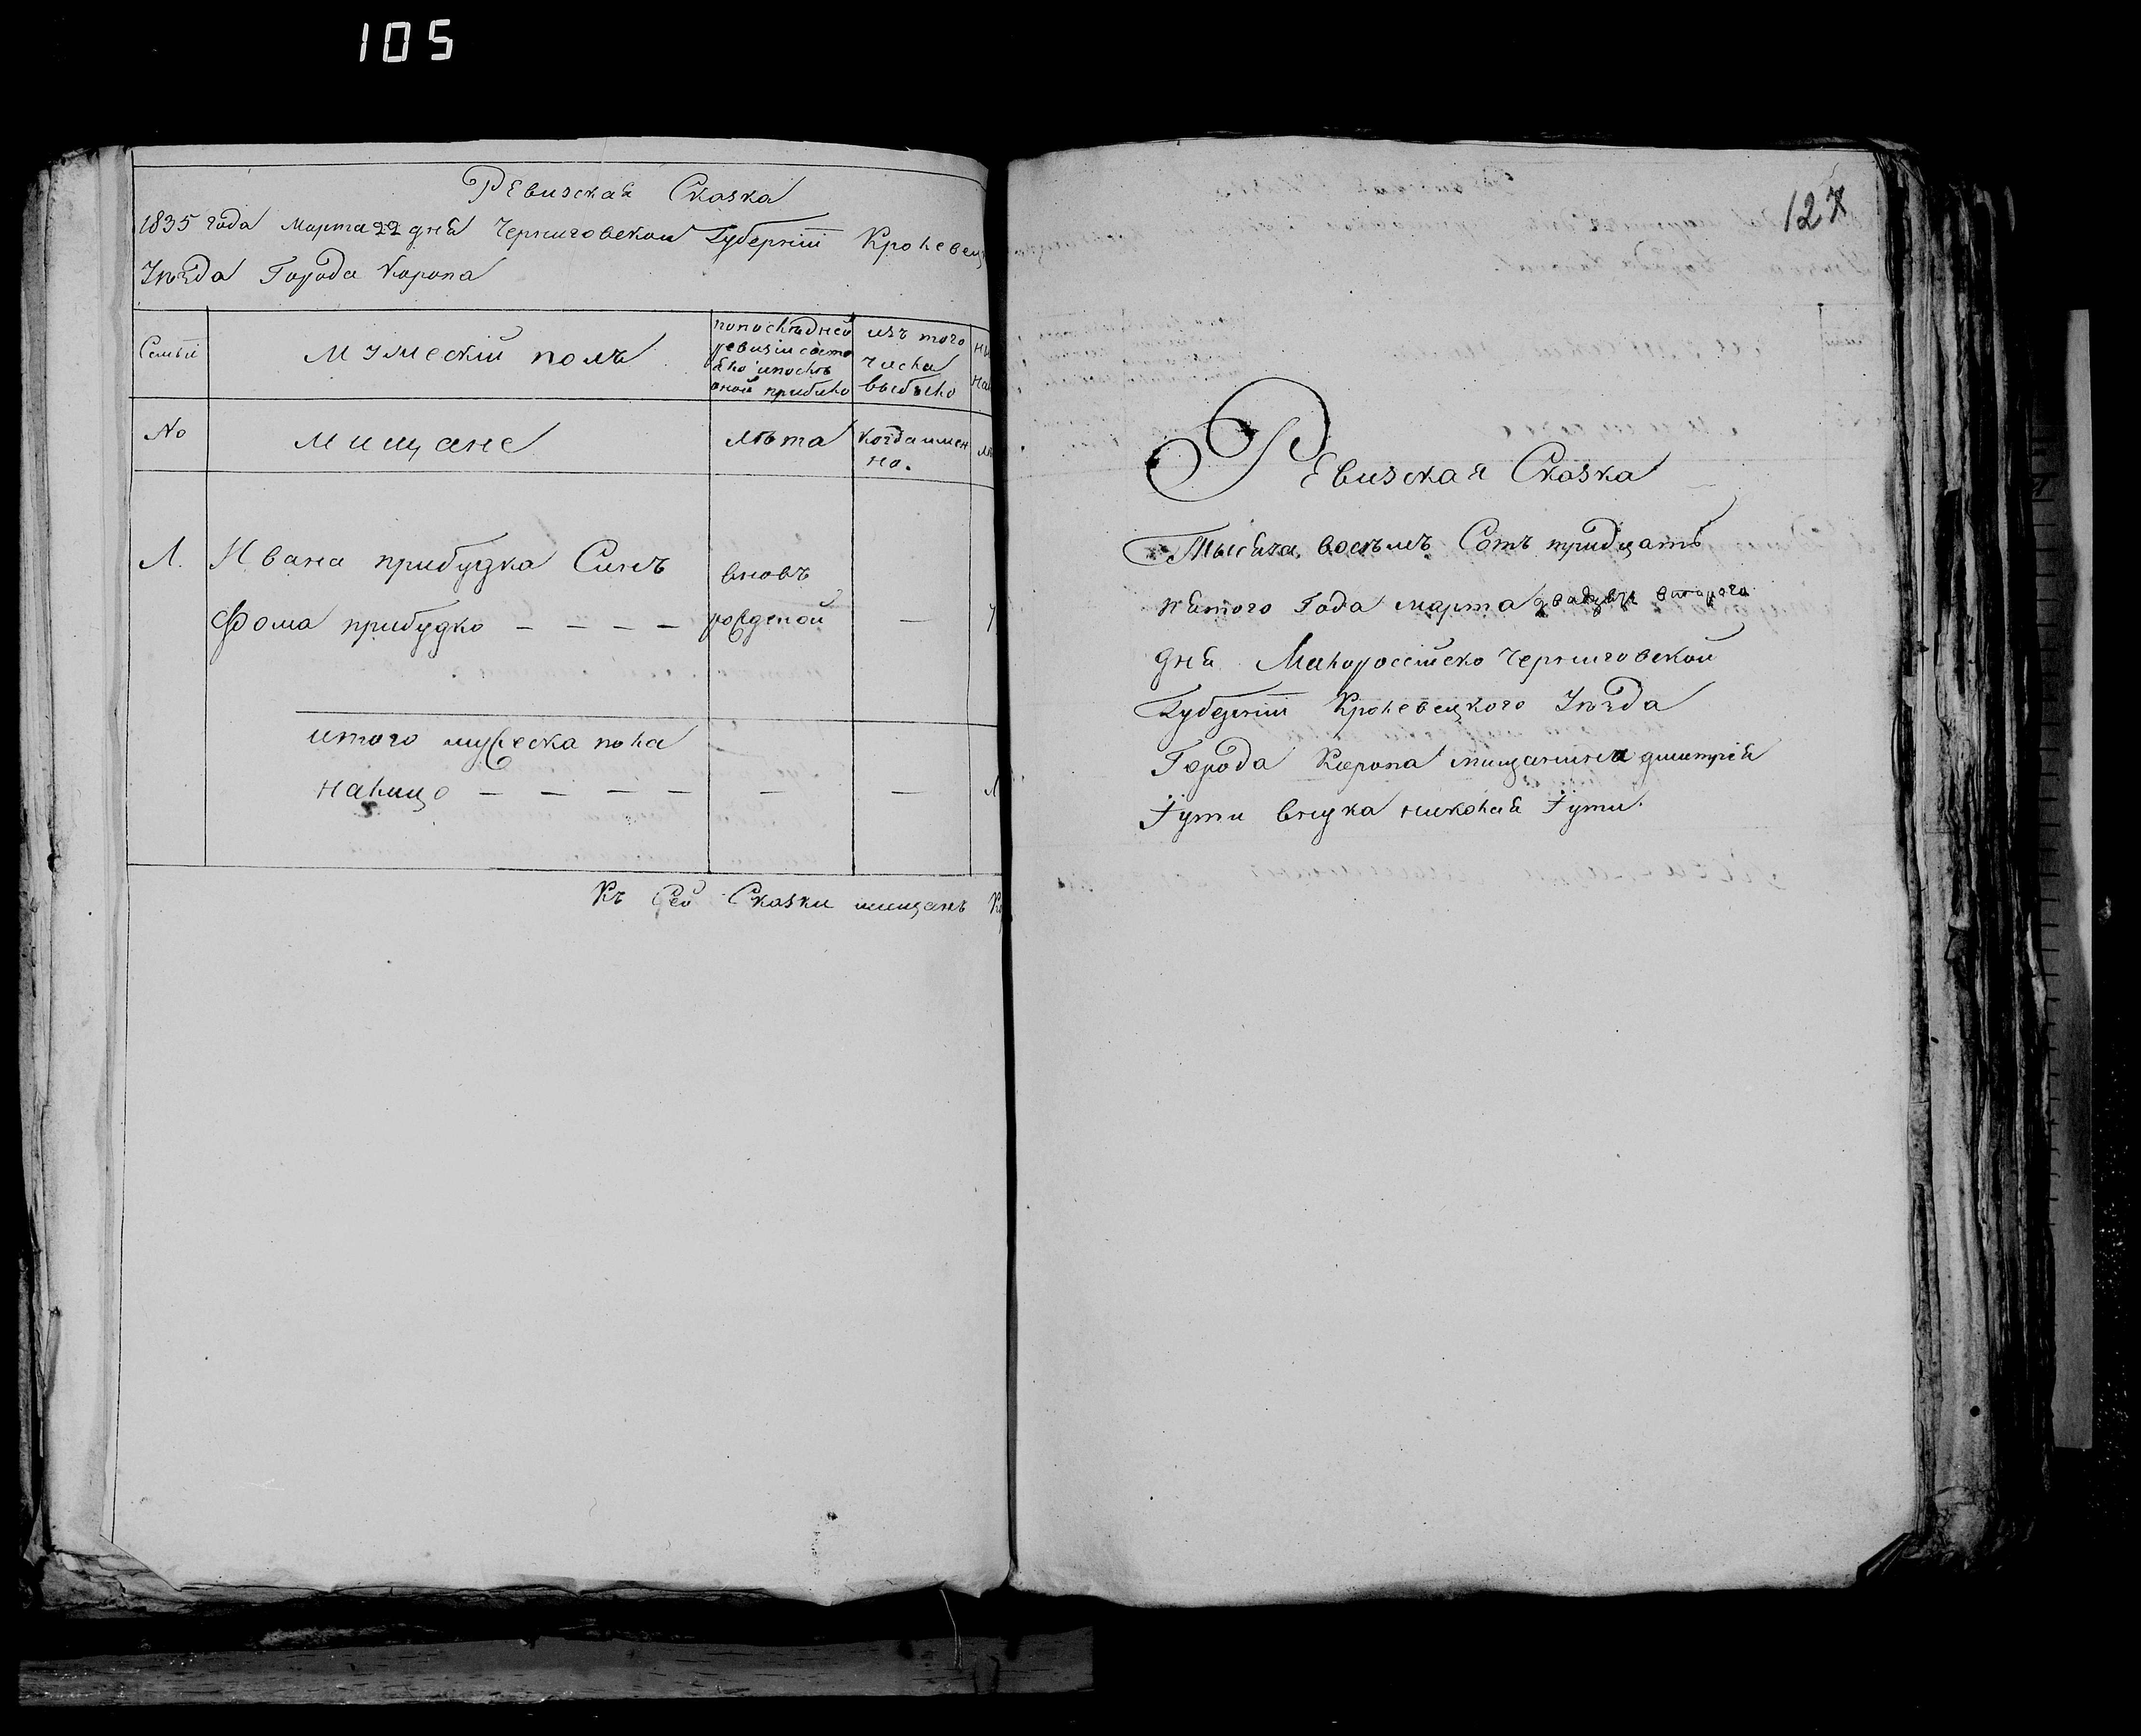 105
Ревизская Сказка
1835 года Марта 22 дня Черниговскои Губернїи Кролевец
Уѣзда Города Коропа
Семьи
Мужескій полъ
по послѣдней ревизіи состояло и послѣ оной прибило
изъ того числа выбыло
№
мищане
лѣта
когда имен но.
Л. Ивана прибудка Синъ
вновъ
Фома прибудко — — — — рожденой —
итого мужеска пола
налицо — — — — — —
Къ Сей Сказки мищанъ
127
Ревизская Сказка
Тысяча, восѣмъ Сотъ тридцать
пятого Года марта двадцать второго
дня Малоросійско Черниговской
Губерніи Кролевецкого Уѣзда
Города Коропа мищанина дмитрія
Гути внука николая Гути.